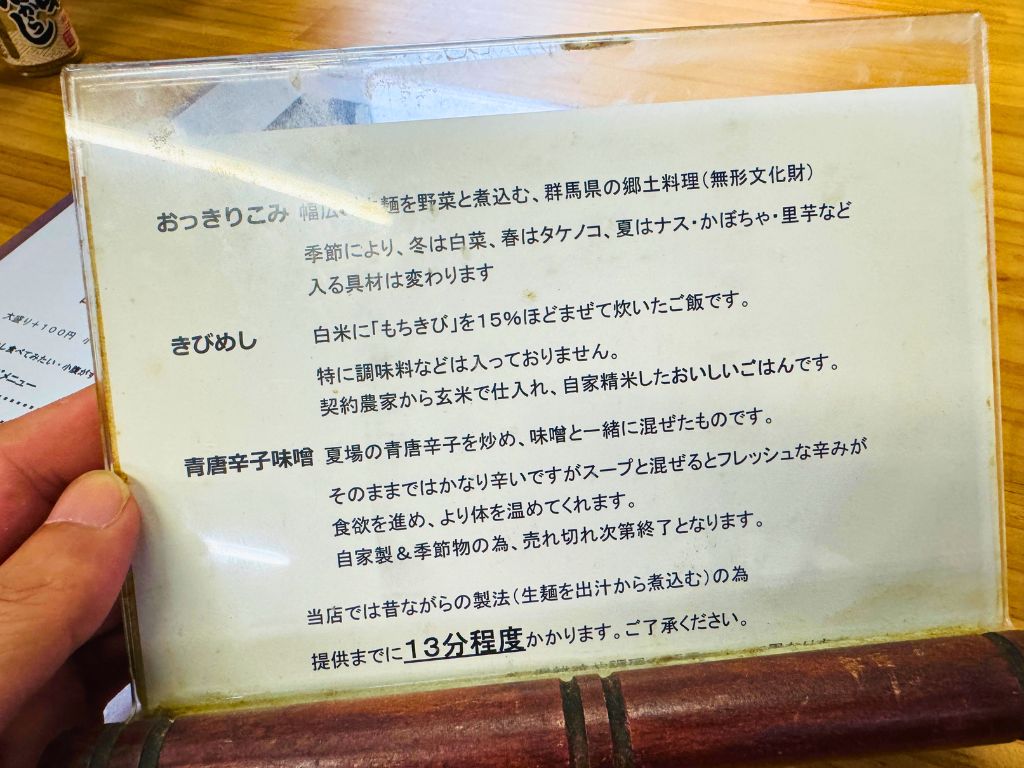 らし
おっきりこみ 幅広い生麺を野菜と煮込む、群馬県の郷土料理(無形文化財)
季節により、冬は白菜、春はタケノコ、夏はナス・かぼちゃ・里芋など
入る具材は変わります
きびめし 白米に「もちきび」を15%ほどまぜて炊いたご飯です。
特に調味料などは入っておりません。
契約農家から玄米で仕入れ、自家精米したおいしいごはんです。
青唐辛子味噌 夏場の青唐辛子を炒め、味噌と一緒に混ぜたものです。
そのままではかなり辛いですがスープと混ぜるとフレッシュな辛みが
食欲を進め、より体を温めてくれます。
自家製&季節物の為、売れ切れ次第終了となります。
当店では昔ながらの製法(生麺を出汁から煮込む)の為
提供までに13分程度かかります。ご了承ください。
大盛り+100円
し食べてみたい・小腹がす
メニュー